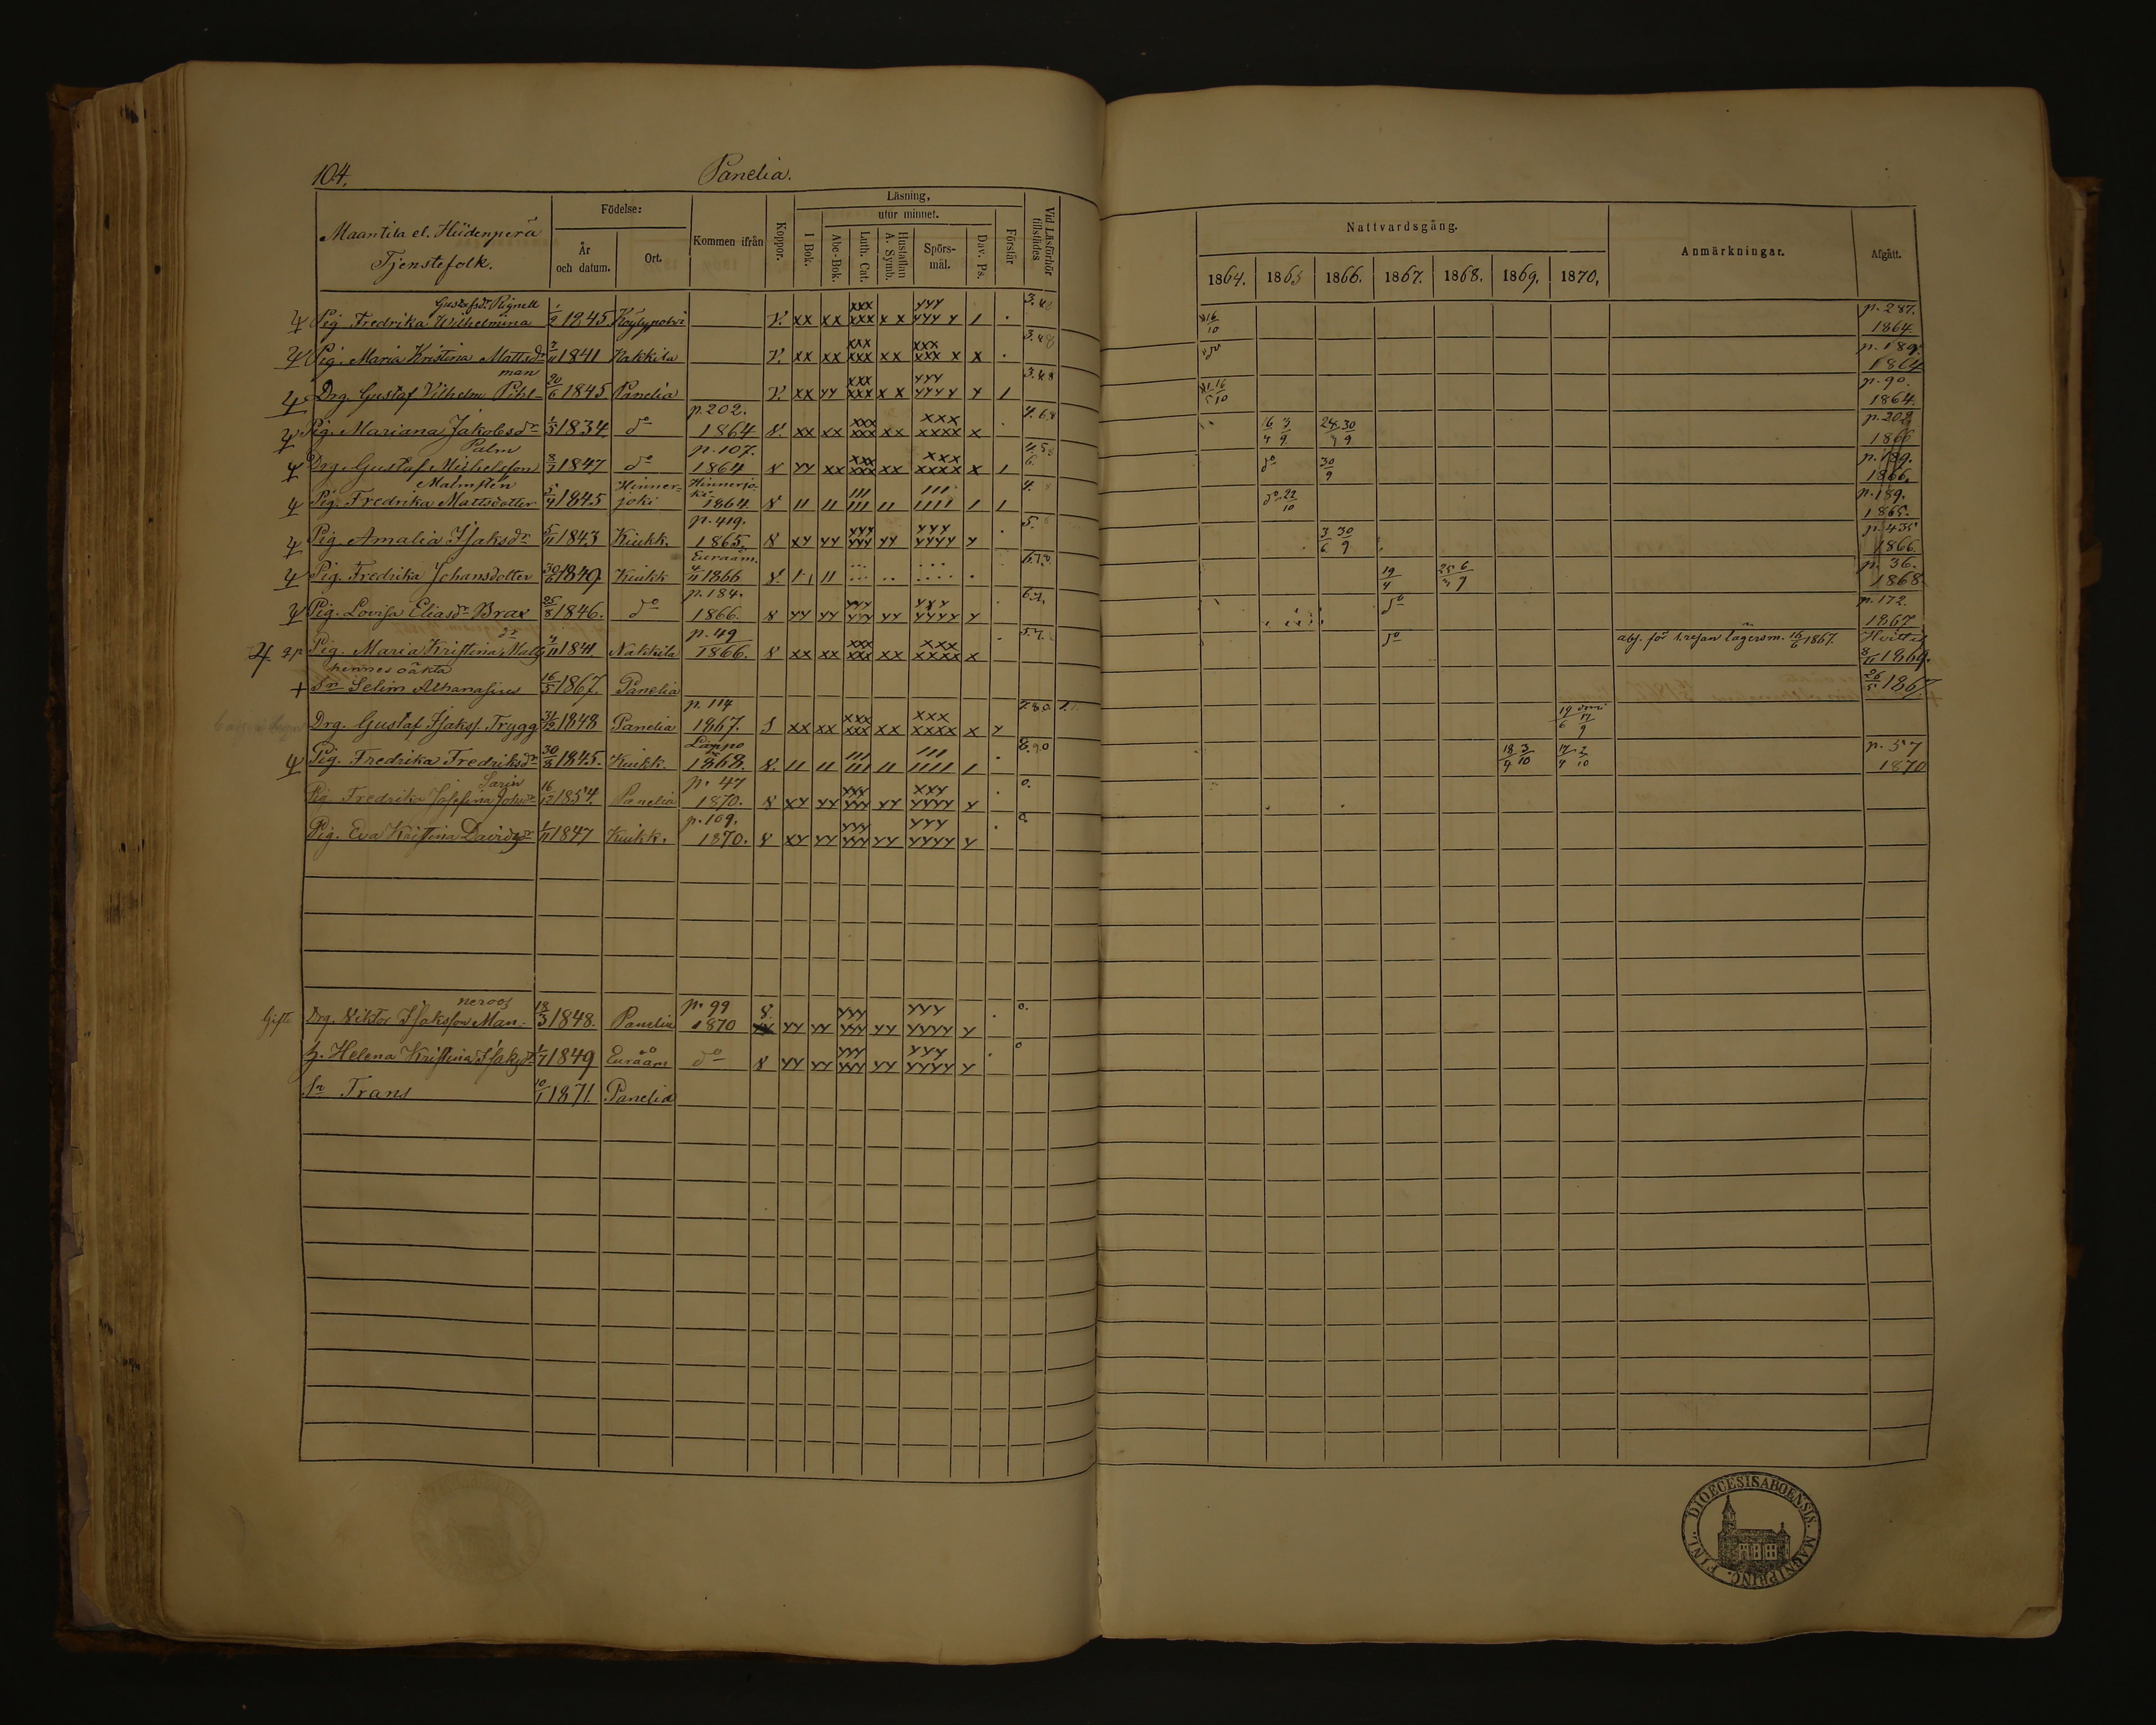 104.
Panelia.
Maantila el. Hiidenperä
Tjenstefolk.
Födelse:
År och datum.
Ort.
Kommen ifrån
Koppor.
Läsning,
I Bok.
utur minnet.
Abc-Bok.
Luth. Cat.
Hustaflan A. Symb.
Spörsmål.
Dav. Ps.
Förstår
Vid Läsförhör tillstädes
Nattvardsgång.
1864. 1865 1866. 1867. 1868. 1869. 1870.
Anmärkningar.
Afgått.
Gustafsdr Rignell
Pig. Fredrika Wilhelmina 1/2 1845 Köylypolvi V. xx xx xxx xxx x x yyy yyy y 1 16/10 p. 287. 1864
Pig. Maria Kristina Mattsdr 7/11 1841 Nakkila V. xx xx xxx xxx xx xxx xxx x x do p. 189. 1864
man
Drg. Gustaf Vilhelm Pihl- 20/6 1845 Panelia V. xx yy xxx xxx x x yyy yyyy y 1 16/10 p. 90. 1864.
Pig. Mariana Jakobsdr 1/3 1834 do p. 202. 1864 8. xx xx xxx xxx xx xxx xxxx x 4.6.8 16/4 3/9 24/4 30/9 p. 202 1866
Palm
Drg. Gustaf Michelsson 8/7 1847 do p. 107. 1864 8 yy xx xxx xxx xx xxx xxxx x 1 do 30/9 p. 189. 1866.
Malmsten
Pig. Fredrika Mattsdotter 5/4 1845 Hinnerjoki Hinnerjoki 1864 8 11 11 111 111 11 111 1111 1 1 4. do 22/10 p. 189. 1865.
Pig. Amalia Isaksdr 5/11 1843 Kiukk. p. 419. 1865. 8 xy yy yyy yyy yy yyy yyyy y 5. 3/6 30/9 p. 435 1866.
Pig. Fredrika Johansdotter 30/6 1849 Kiukk Euraåm. 4/11 1866 8. 6.7.8. 19/4 25/3 6/9 p. 36. 1868
Pig. Lovisa Eliasdr Brax 25/8 1846. do p. 184. 1866. 8 yy yy yyy yyy yy yyy yyyy y 6.7. do p. 172. 1867
Pig. Maria Kristina Matts dr 7/11 1841 Nakkila p. 49 1866. 8 xx xx xxx xxx xx xxx xxxx x 5.7. do abs. för 1. resan lägersm. 16/6 1867. Hvittis 8/11 1869.
hennes oäkta
+ Sn Selim Athanasius 16/5 1867. Panelia 26/5 1867
Drg. Gustaf Isaks. Trygg 31/12 1848 Panelia p. 114 1867. xx xx xxx xxx xx xxx xxxx x y 7.8.0. 19/6 17/9
Pig. Fredrika Fredriksdr 30/8 1845. Kiukk. Lappo 1868. 8. 11 11 111 111 11 111 1111 1 8.9.0 18/4 3/10 17/4 2/10 p. 57 1870
Sarin
Pig. Fredrika Josefina Johsdr 16/12 1854. Panelia p. 47 1870. 8 xy yy yyy yyy yy xyy yyyy y 0.
Pig. Eva Kristina Davidsdr 1/11 1847 Kiukk. p. 109. 1870. 8 xy yy yyy yyy yy yyy yyyy y 0.
neroos
Gifte Drg. Viktor Isaksson Man- 18/3 1848. Panelia p. 99 1870 8. yy yy yyy yyy yy yyy yyyy y 0.
h. Helena Kristina Isaksdr 1/7 1849 Euraåm do 8 yy yy yyy yyy yy yyy yyyy y 0
Sn Frans 10/1 1871. Panelia
DIOECESIS ABOENSIS. MAGNI PRINC. FINL.